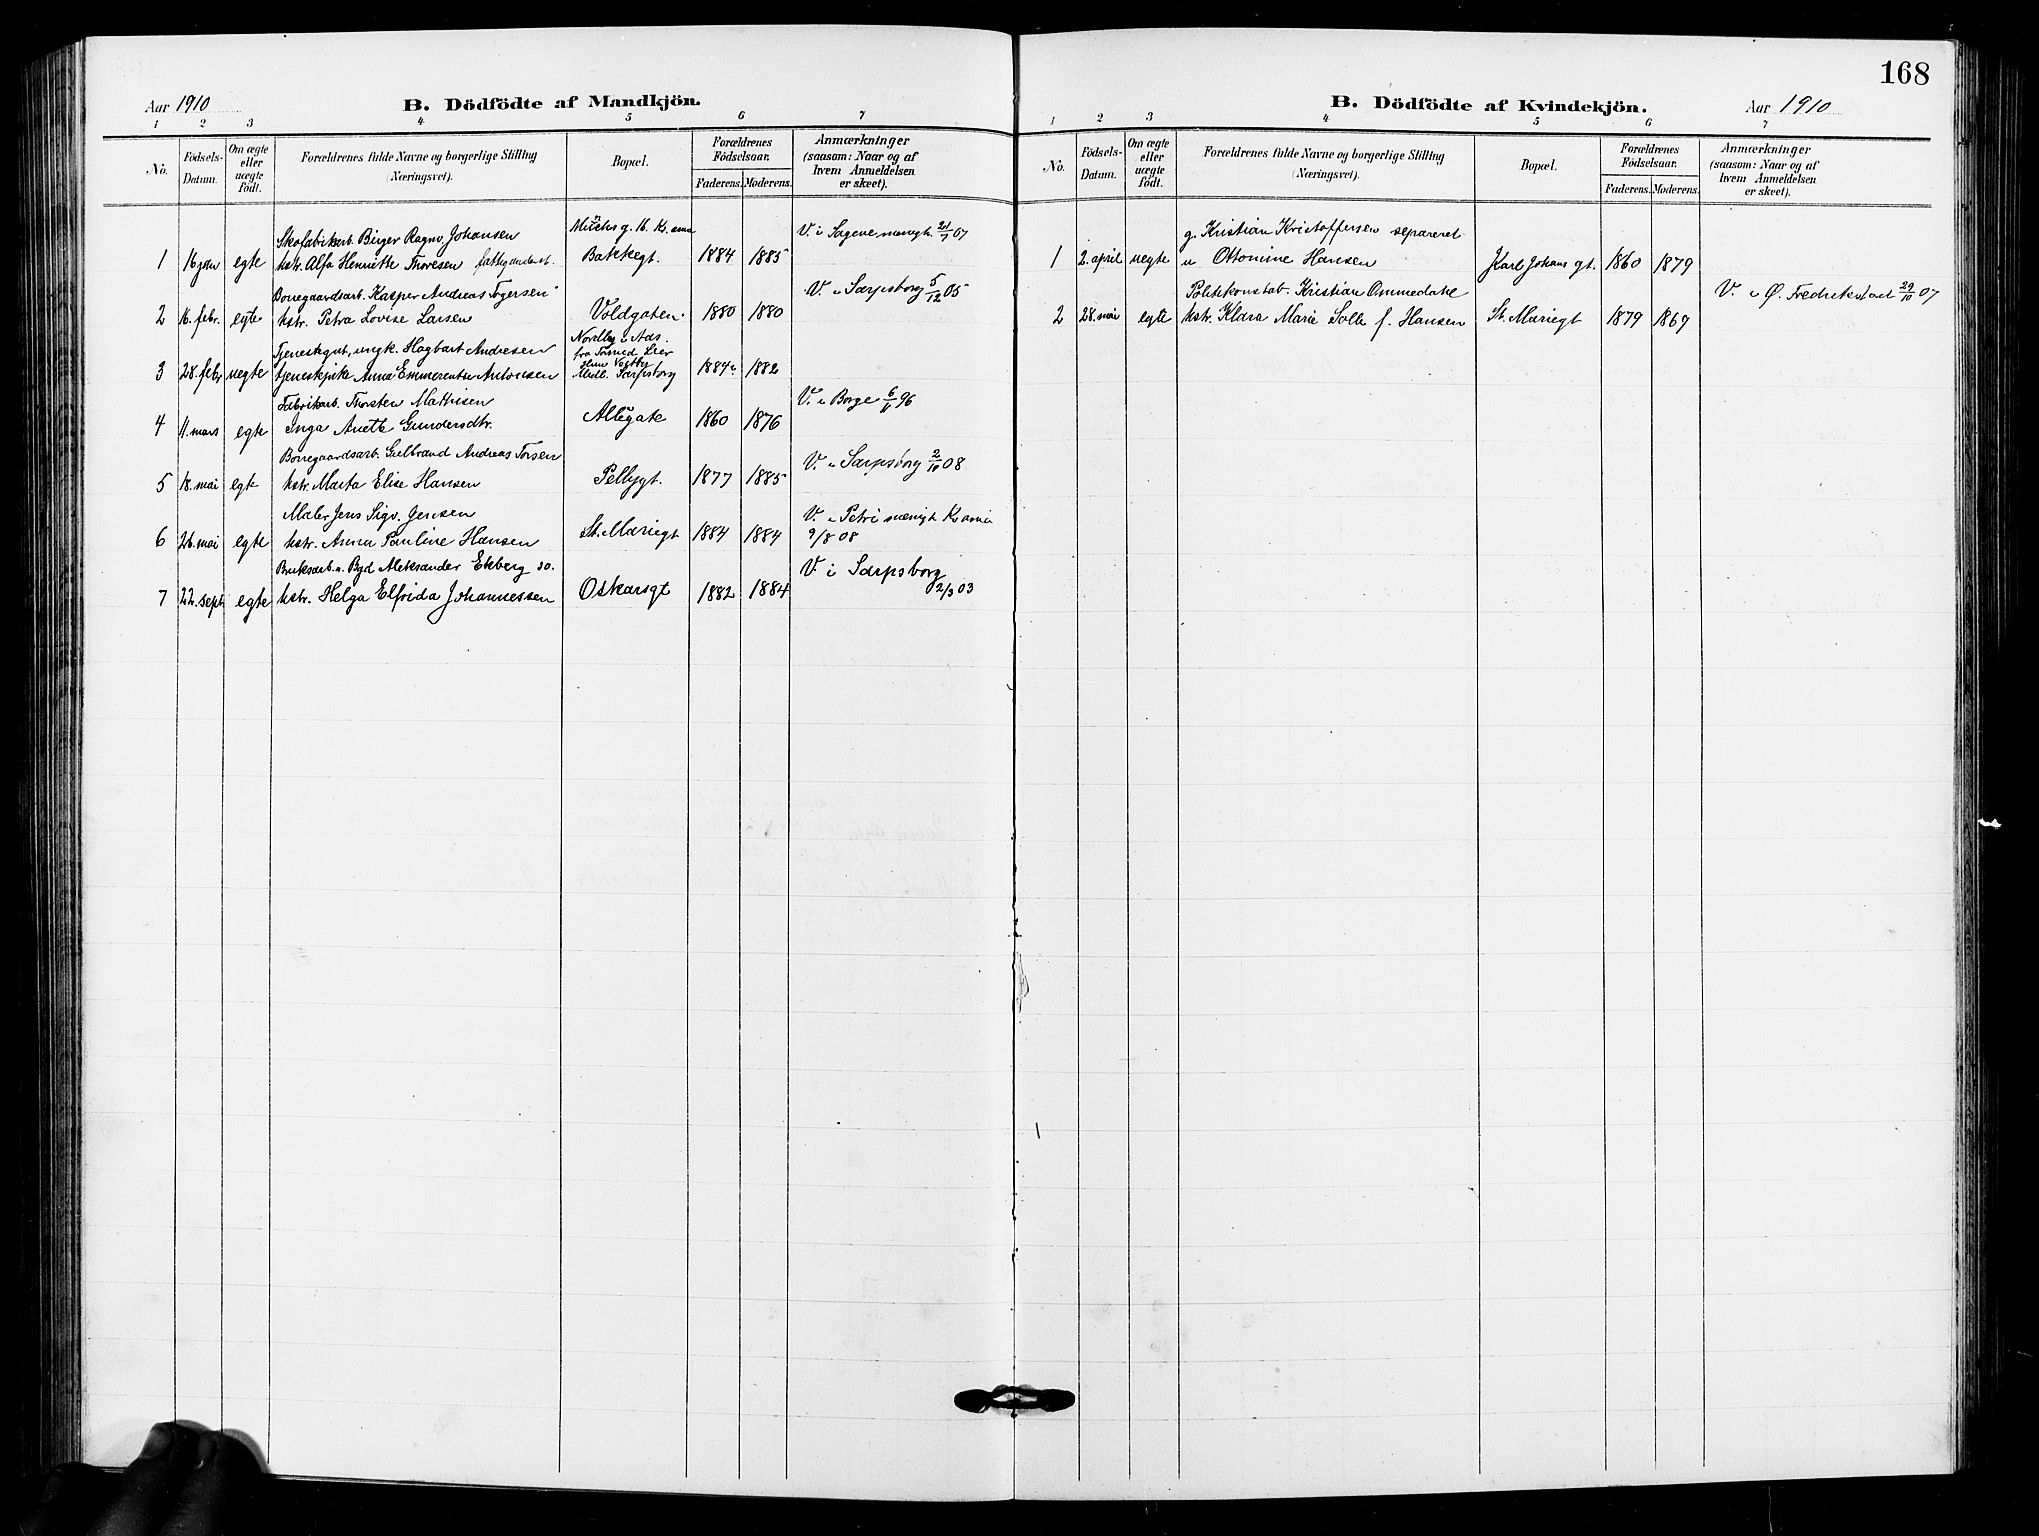 168
Aar 1910
B. Dödfödte af Mandkjön.
1 2 3 4 5 6 7
No.
Födsels-Datum.
Om ægte eller uægte födt.
Forældrenes fulde Navne og borgerlige Stilling (Næringsvei).
Bopæl.
Forældrenes Födselsaar.
Faderens. Moderens.
Anmærkninger (saasom: Naar og af hvem Anmeldelsen er skeet).
Skofabrikarb. Birger Ragnv. Johansen
1 16 jan egte hstr. Alfa Henriette Thoresen
Bakkegt. 1884 1885
V. i Sagene menigh. 21/7 07
Borregaardsarb. Kasper Andreas Togersen
2 16. febr. egte hstr. Petra Lovise Larsen
Voldgaten. 1880 1880
V. i Sarpsborg 5/12 05
Tjenestegut, ungk. Hagbart Andresen
3 28. febr uegte tjenestepike Anna Emmerentse Antonsen
Nordby i Ads.
Sarpsborg 1884 1882
Fabrikarb. Thorsten Mathisen
4 11. mars egte Inga Anette Gundersdtr.
Allegate 1860 1876
V. i Borge 6/11 96
Borregaardsarb. Gulbrand Andreas Torsen
5 18. mai egte hstr. Marta Elise Hansen
Pellygt. 1877 1885
V. i Sarpsborg 2/10 08
Maler Jens Sigv. Jensen
6 26. mai egte hstr. Anna Pauline Hansen
St. Mariegt 1884 1884
V. i Petri menigh Kr.ania
9/8 08
Bruksarb. Aleksander Ekberg
7 22. sept egte hstr. Helga Elfrida Johannessen
Oskarsgt 1882 1884
V. i Sarpsborg
2/3 03
B. Dödfödte af Kvindekjön.
Aar 1910
1 2 3 4 5 6 7
No.
Födsels-Datum.
Om ægte eller uægte födt.
Forældrenes fulde Navne og borgerlige Stilling (Næringsvei).
Bopæl.
Forældrenes Födselsaar.
Faderens. Moderens.
Anmærkninger (saasom: Naar og af hvem Anmeldelsen er skeet).
g. Kristian Kristoffersen separeret
1 2. april uegte u Ottomine Hansen
Karl Johans gt. 1860 1879
Politikonstab. Kristian Ommedake
2 28. mai egte hstr. Klara Marie Solle f. Hansen
St. Mariegt 1879 1869
V. i Ø. Fredrikstad 29/10 07